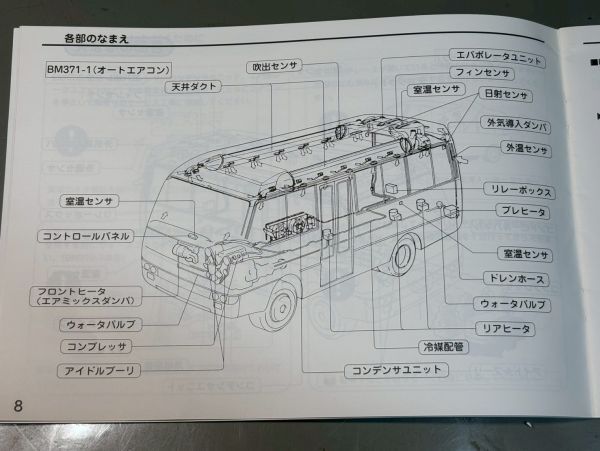 各部のなまえ
BM371-1(オートエアコン)
吹出センサ
天井ダクト
エバポレータユニット
フィンセンサ
室温センサ
日射センサ
外気導入ダンパ
外温センサ
リレーボックス
プレヒータ
室温センサ
ドレンホース
ウォータバルブ
リアヒータ
冷媒配管
コンデンサユニット
室温センサ
コントロールパネル
フロントヒータ
(エアミックスダンパ)
ウォータバルブ
コンプレッサ
アイドルプーリ
8